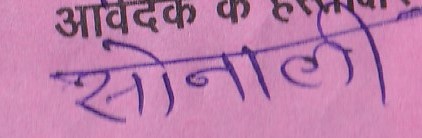 आवेदक के हस्ताक्षर
सोनाली